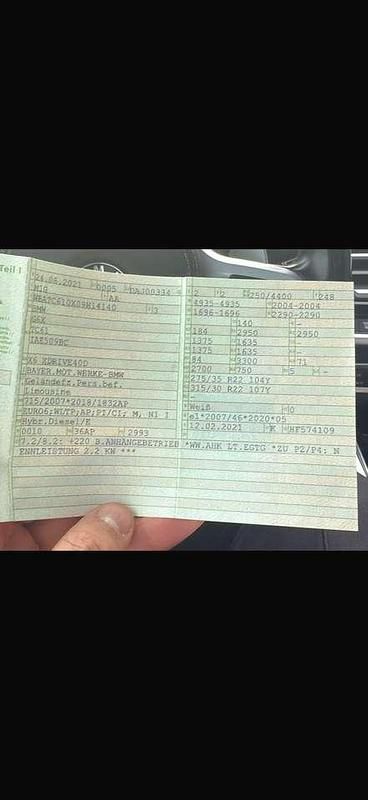 Teil I
24.06.2021 0005
M1G AA
3
BMW
G6X
7C41
X6 XDRIVE40D
BAYER.MOT.WERKE-BMW
Geländefz.Pers.bef.
Limousine
715/2007*2018/1832AP
EURO6;WLTP;AP;PI/CI; M, N1 I
Hybr.Diesel/E
0010 36AP 2993
7.2/8.2: +220 B.ANHÄNGEBETRIEB *WW.AHK LT.EGTG *ZU P2/P4: N
ENNLEISTUNG 2.2 KW ***
2 2 250/4400 248
4935-4935 2004-2004
1696-1696 2290-2290
140 -
184 2950 2950
1375 1635
1375 1635 -
84 3300 71
2700 750 5 -
275/35 R22 104Y
315/30 R22 107Y
-
Weiß 0
e1*2007/46*2020*05
12.02.2021 K HF574109